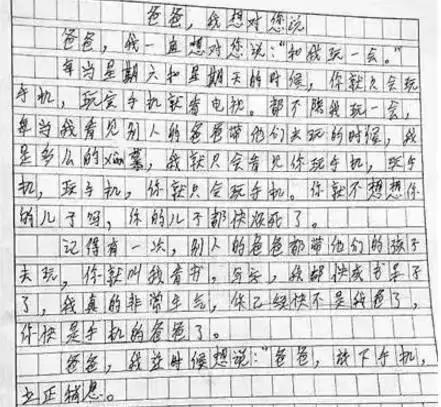 爸爸，我想对您说
爸爸，我一直想对您说："和我玩一会。"
每当星期六和星期天的时候，你就只会玩
手机，玩完手机就看电视。都不陪我玩一会，
每当我看见别人的爸爸带他们去玩的时候，我
是多么的xian慕，我就只会看见你玩手机，玩手
机，玩手机，你就只会玩手机。你就不想想你
的儿子吗，你的儿子都快烦死了。
记得有一次，别人的爸爸都带他们的孩子
去玩，你就叫我看书，写字，我都快成书呆子
了，我真的非常生气，你已经快不是我爸爸了，
你快是手机的爸爸了。
爸爸，我这时候想说："爸爸，放下手机，
立正稍息。